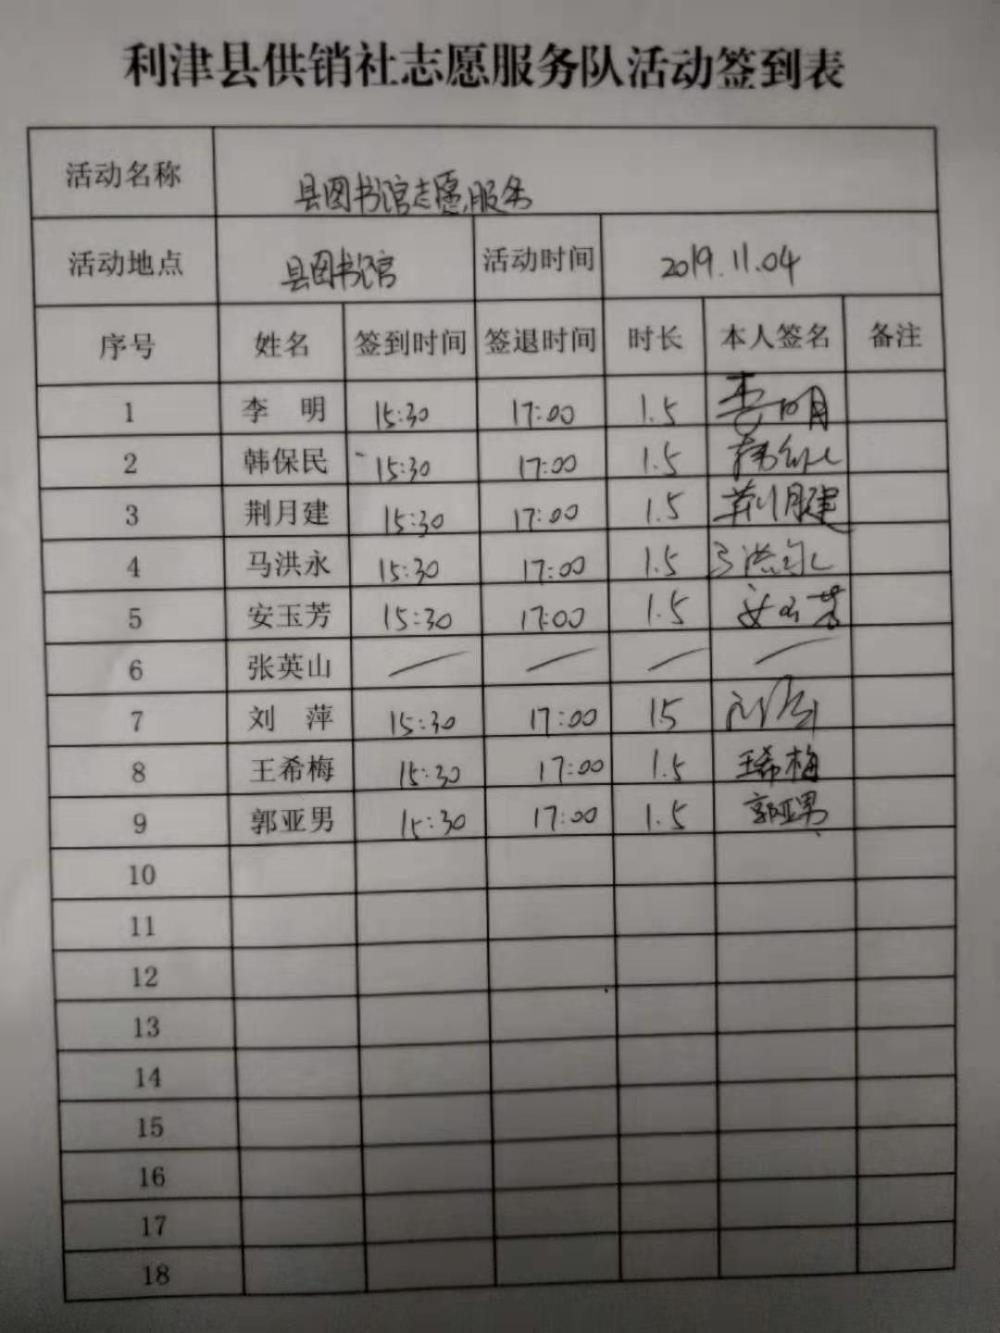 利津县供销社志愿服务队活动签到表
活动名称 县图书馆志愿服务
活动地点 县图书馆 活动时间 2019.11.04
序号 姓名 签到时间 签退时间 时长 本人签名 备注
1 李 明 15:30 17:00 1.5 李明
2 韩保民 15:30 17:00 1.5
3 荆月建 15:30 17:00 1.5 荆月建
4 马洪永 15:30 17:00 1.5 马洪永
5 安玉芳 15:30 17:00 1.5 安玉芳
6 张英山 — — — —
7 刘 萍 15:30 17:00 15
8 王希梅 15:30 17:00 1.5 王希梅
9 郭亚男 15:30 17:00 1.5 郭亚男
10
11
12
13
14
15
16
17
18